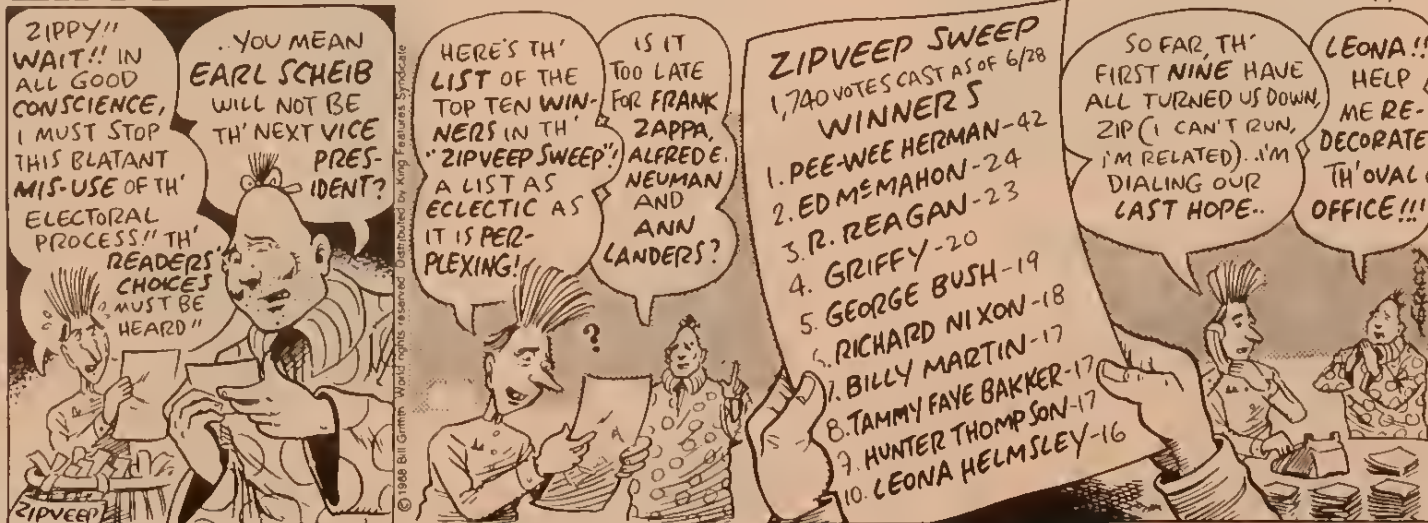 ZIPPY!!
WAIT!! IN
ALL GOOD
CONSCIENCE,
I MUST STOP
THIS BLATANT
MIS-USE OF TH'
ELECTORAL
PROCESS!! TH'
READERS'
CHOICES
MUST BE
HEARD!!
..YOU MEAN
EARL SCHEIB
WILL NOT BE
TH' NEXT VICE
PRES-
IDENT?
ZIPVEEP
©1988 Bill Griffith World rights reserved Distributed by King Features Syndicate
HERE'S TH'
LIST OF THE
TOP TEN WIN-
NERS IN TH'
"ZIPVEEP SWEEP"!
A LIST AS
ECLECTIC AS
IT IS PER-
PLEXING!
IS IT
TOO LATE
FOR FRANK
ZAPPA,
ALFRED E.
NEUMAN
AND
ANN
LANDERS?
?
ZIPVEEP SWEEP
1,740 VOTES CAST AS OF 6/28
WINNERS
1. PEE-WEE HERMAN-42
2. ED McMAHON-24
3. R. REAGAN-23
4. GRIFFY-20
5. GEORGE BUSH-19
6. RICHARD NIXON-18
7. BILLY MARTIN-17
8. TAMMY FAYE BAKKER-17
9. HUNTER THOMPSON-17
10. LEONA HELMSLEY-16
SO FAR, TH'
FIRST NINE HAVE
ALL TURNED US DOWN,
ZIP (I CAN'T RUN,
I'M RELATED)..I'M
DIALING OUR
LAST HOPE..
LEONA!!
HELP
ME RE-
DECORATE
TH' OVAL
OFFICE!!!